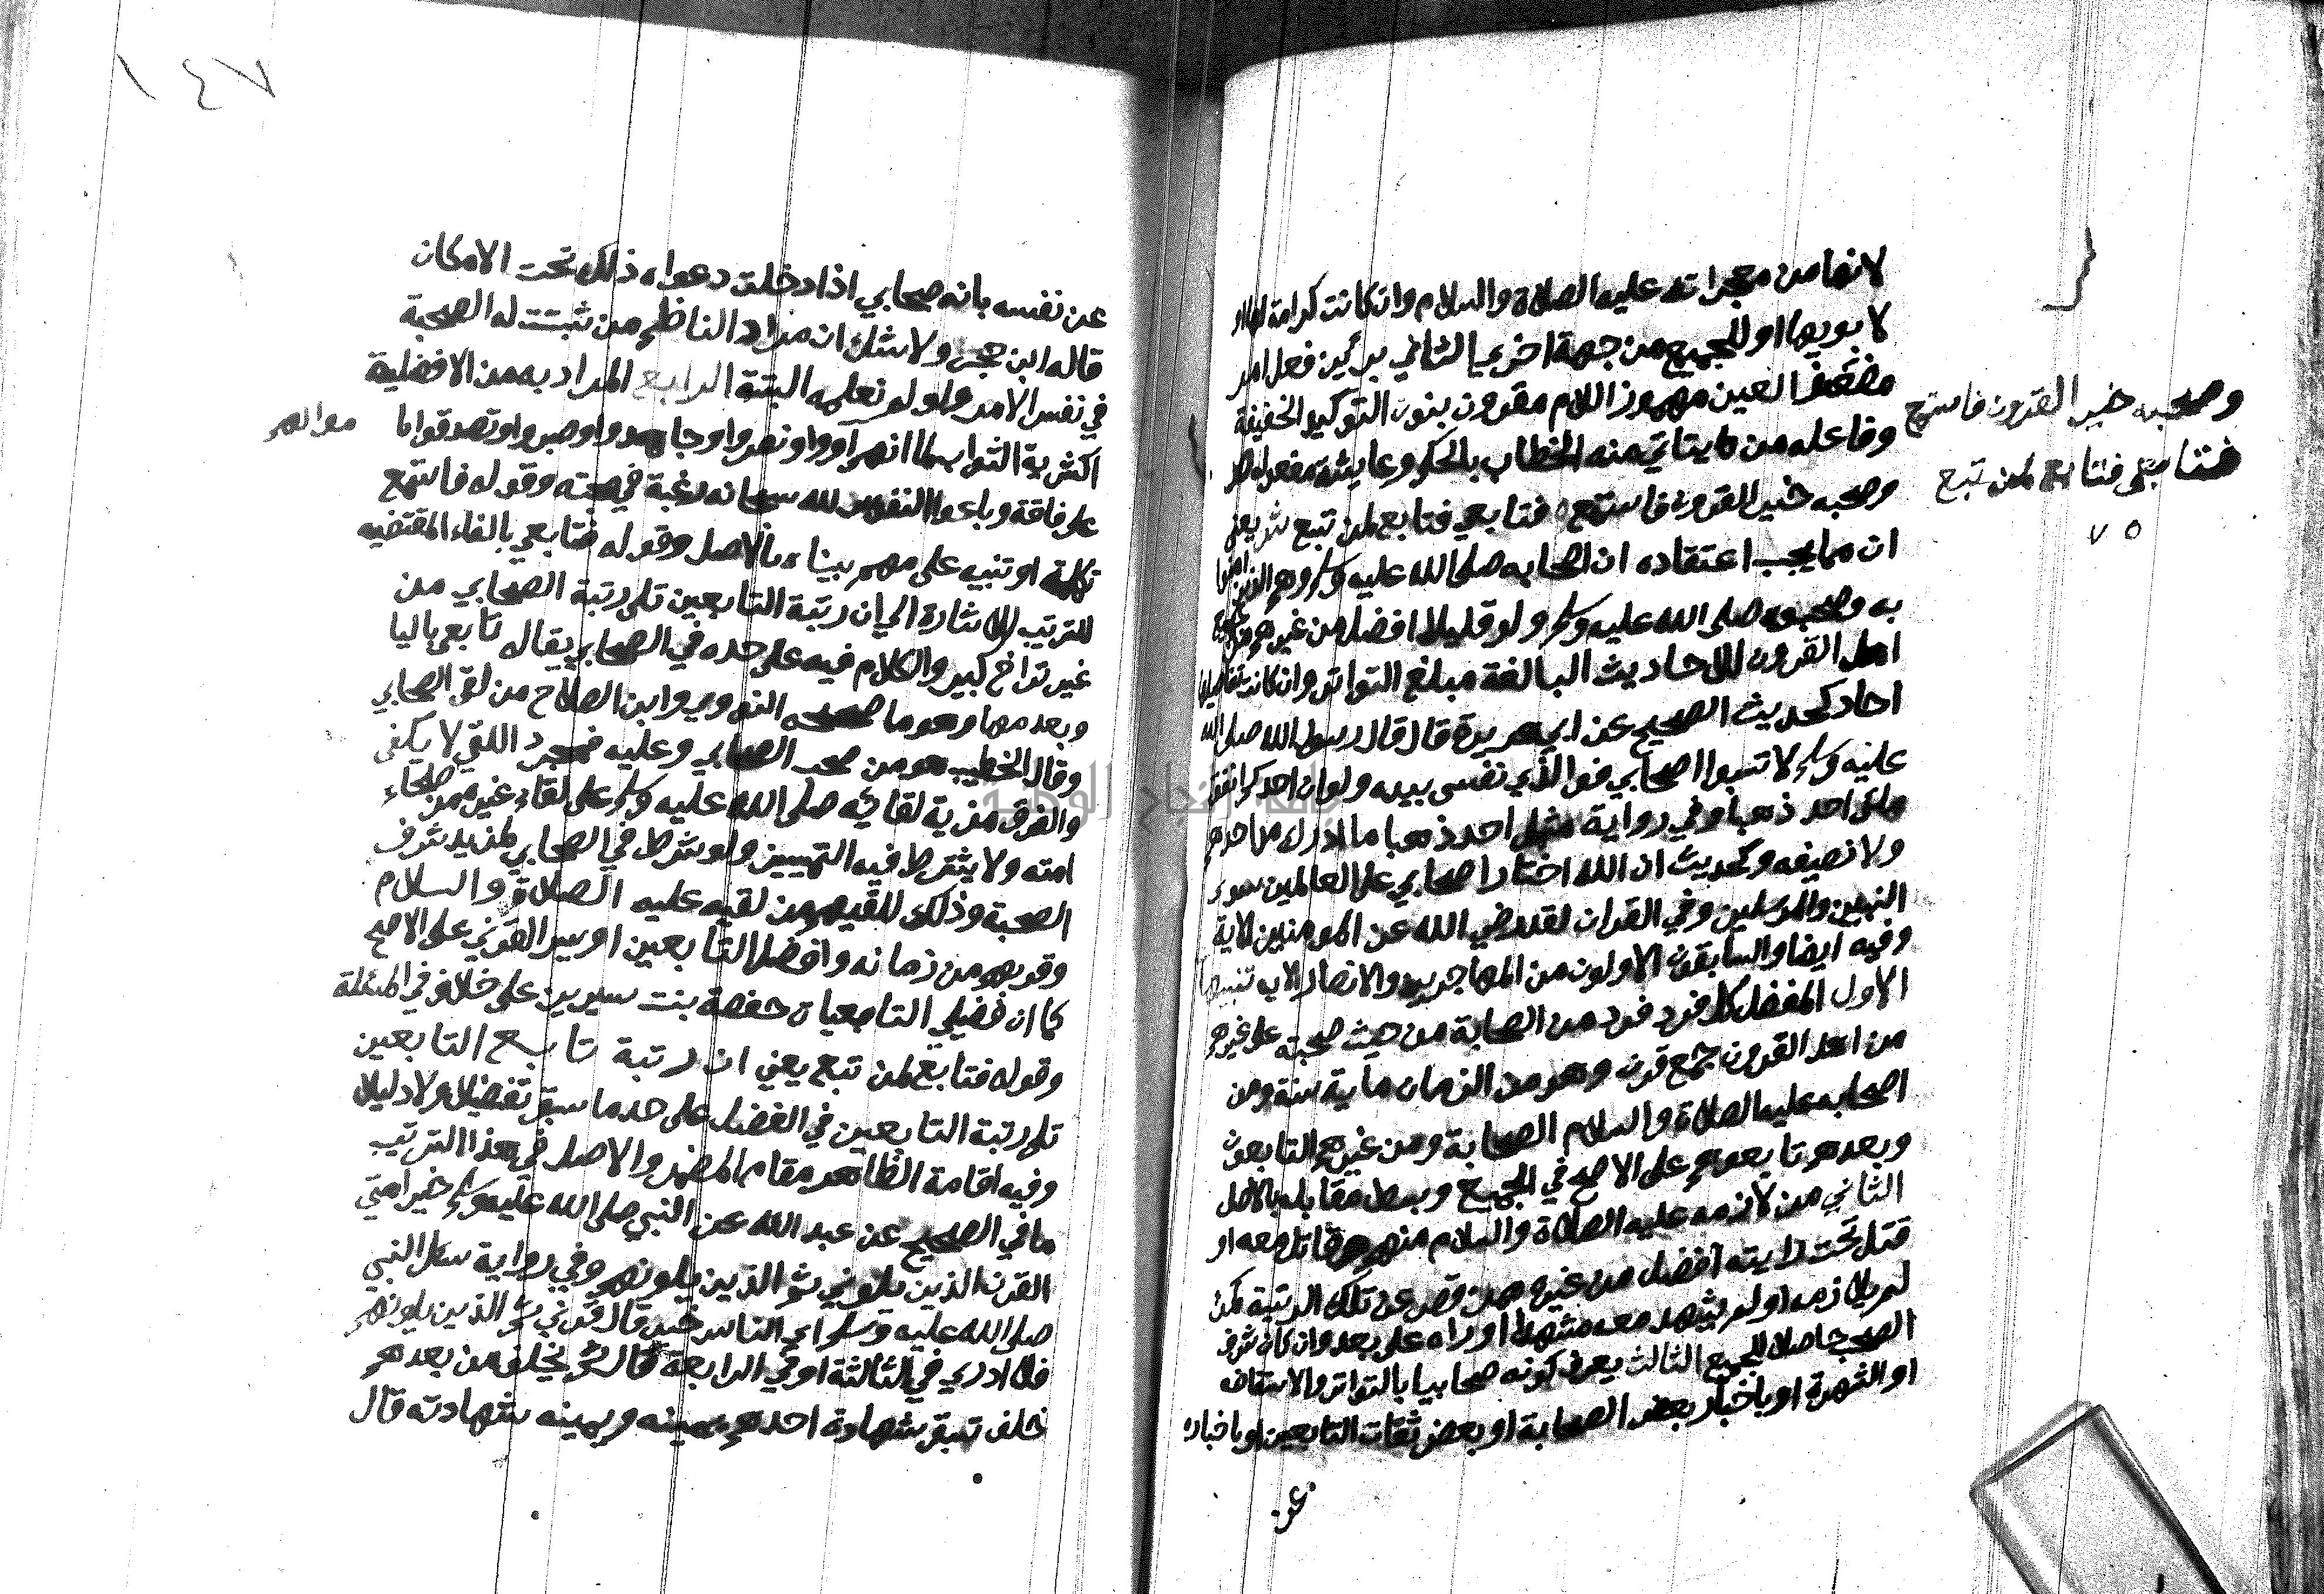 لانها من معجزاته عليه الصلاة والسلام وان كانت كرامة لها او
لابويها او للجميع من جهة اخرى الثاني برئين فعل امر
مضعف العين مهموز اللام مقرون بنون التوكيد الخفيفة
وفاعله من يتاتي منه الخطاب بالحكم وعايشة مفعوله ص
وصحبه خير القرون فاستمع فتابعي فتابع لمن تبع ش يعني
ان مما يجب اعتقاده ان اصحابه صلى الله عليه وسلم وهم الذين امنوا
به وصحبوه صلى الله عليه وسلم ولو قليلا افضل من غيرهم من جميع
اهل القرون للاحاديث البالغة مبلغ التواتر وان كانت تفاصيلها
احاد كحديث الصحيح عن ابي هريرة قال قال رسول الله صلى الله
عليه وسلم لا تسبوا اصحابي فوالذي نفسي بيده ولو ان احدكم انفق
ملئ احد ذهبا وفي رواية مثل احد ذهبا ما ادرك مد احدهم
ولا نصيفه وكحديث ان الله اختار اصحابي على العالمين سوى
النبيين والمرسلين وفي القران لقد رضي الله عن المومنين الاية
وفيه ايضا والسابقون الاولون من المهاجرين والانصار الاية تنبيهات
الاول المفضل كل فرد فرد من الصحابة من حيث صحبته على غيرهم
من اهل القرون جمع قرن وهو من الزمان ماية سنة ومن
اصحابه عليه الصلاة والسلام الصحابة ومن غيرهم التابعون
وبعدهم تابعوهم على الاصح في الجميع وبسط مقابله بالاصل
الثاني من لازمه عليه الصلاة والسلام منهم وقاتل معه او
قتل تحت رايته افضل من غيره ممن قصر عن تلك الرتبة كمن
لم يلازمه او لم يشهد معه مشهدا او راه على بعد وان كان شرف
الصحبة حاصلا للجميع الثالث يعرف كونه صحابيا بالتواتر والاستفاضة
او الشهرة او باخبار بعض الصحابة او بعض ثقات التابعين او باخباره
عن
وصحبه خير القرون فاستمع
فتابعي فتابع لمن تبع
٧٥
١٤٧
عن نفسه بانه صحابي اذا دخلت دعواه ذلك تحت الامكان
قاله ابن حجر ولا شك ان مراد الناظم من ثبتت له الصحبة
في نفس الامر ولو لم نعلمه البتة الرابع المراد به من الافضلية
اكثرية الثواب لما انهم آووا ونصروا وجاهدوا وصبروا وتصدقوا
موالهم
على فاقة وباعوا النفوس لله سبحانه رغبة في محبته وقوله فاستمع
تكملة او تنبيه على مهم بيناه بالاصل وقوله فتابعي بالفاء المقتضيه
للترتيب للاشارة الى ان رتبة التابعين تلي رتبة الصحابي من
غير تراخ كبير والكلام فيه على حده في الصحابي يقال تابعي باليا
وبعدمها وهو ما صححه النووي وابن الصلاح من لقي الصحابي
وقال الخطيب هو من صحب الصحابي وعليه فمجرد اللقي لا يكفي
والفرق مزية لقائه صلى الله عليه وسلم على لقاء غيره من صلحاء
امته ولا يشترط فيه التمييز ولو شرط في الصحابي لمزيد شرف
الصحبة وذلك للقيهم من لقيه عليه الصلاة والسلام
وقربهم من زمانه وافضل التابعين اويس القرني على الاصح
كما ان فضلي التابعيات حفصة بنت سيرين على خلاف في المسئلة
وقوله فتابع لمن تبع يعني ان رتبة تابع التابعين
تلي رتبة التابعين في الفضل على حد ما سبق تفضيلا ودليلا
وفيه اقامة الظاهر مقام المضمر والاصل في هذا الترتيب
ما في الصحيح عن عبد الله عن النبي صلى الله عليه وسلم خير امتي
القرن الذين يلوني ثم الذين يلونهم وفي رواية سئل النبي
صلى الله عليه وسلم اي الناس خير قال قرني ثم الذين يلونهم
فلا ادري في الثالثة او في الرابعة قال ثم يخلف من بعدهم
خلف تسبق شهادة احدهم يمينه ويمينه شهادته قال
جامعة النجاح الوطنية